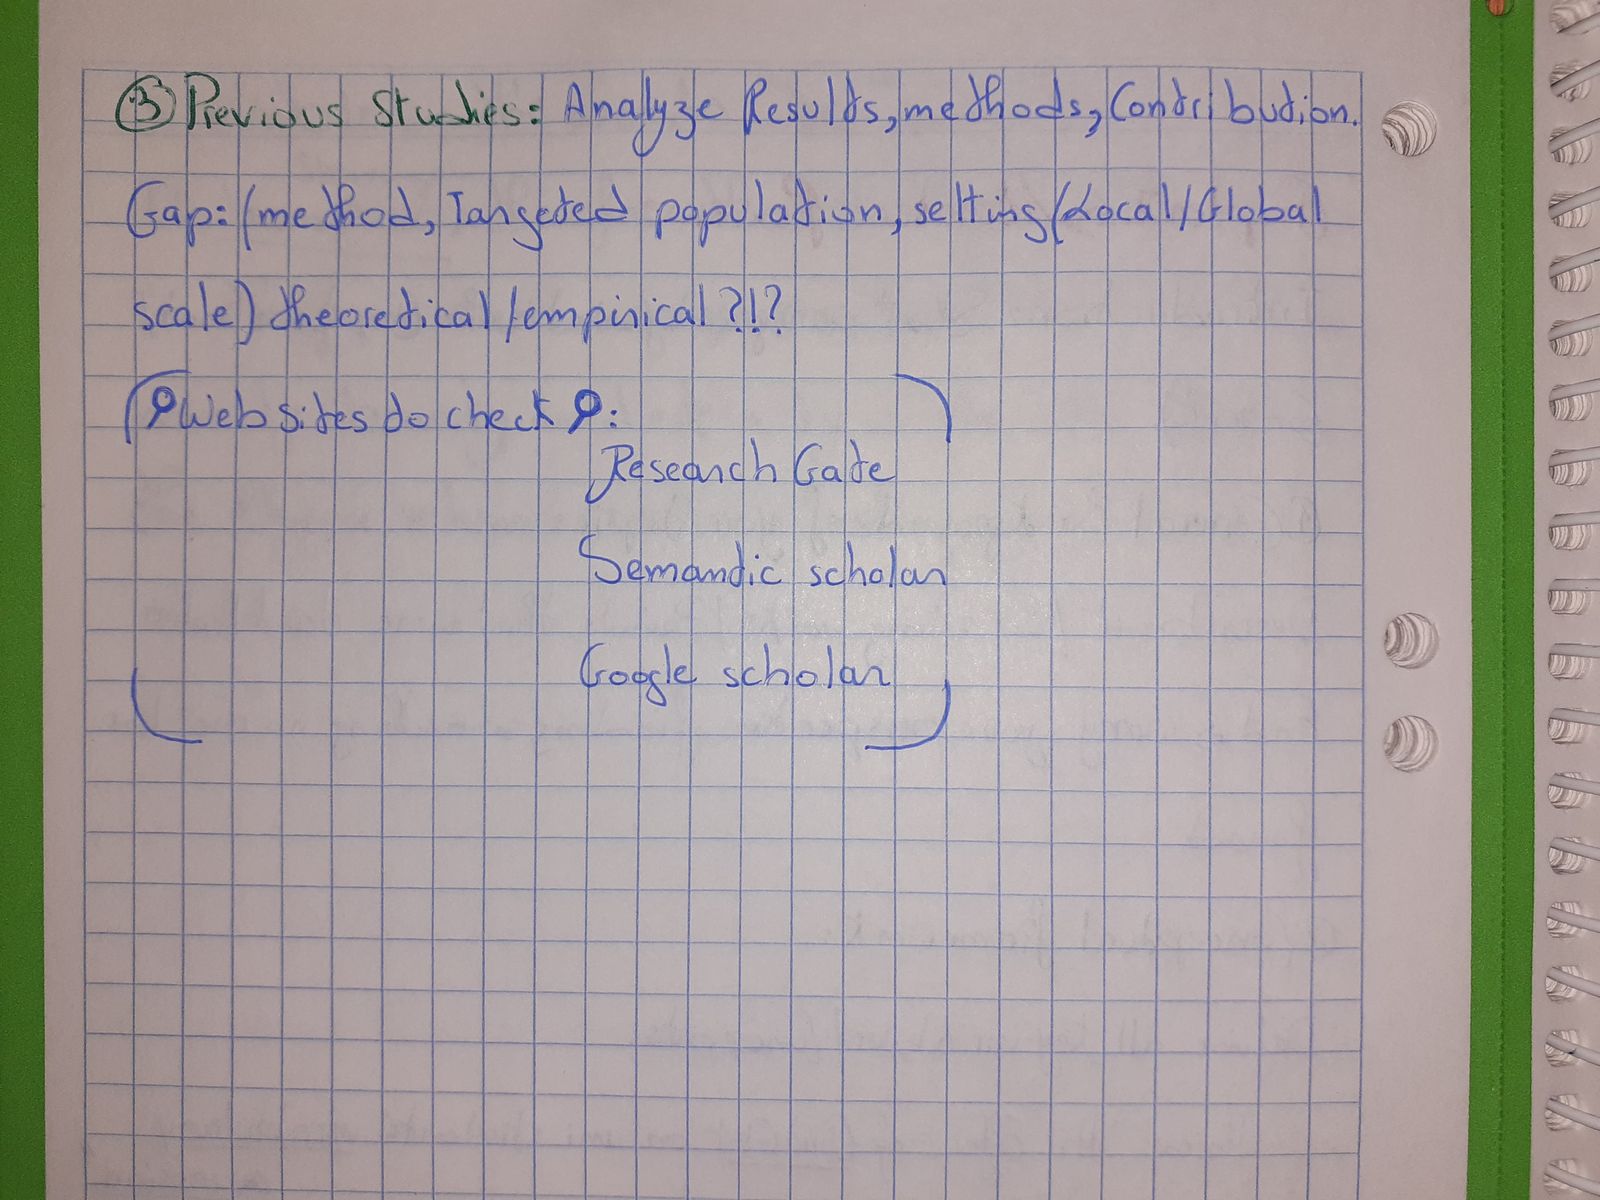 ③ Previous Studies: Analyze Results, methods, Contribution.
Gap: (method, Targeted population, setting (Local/Global
scale) theoretical/empirical ?!?
Web sites to check :
Research Gate
Semantic scholar
Google scholar